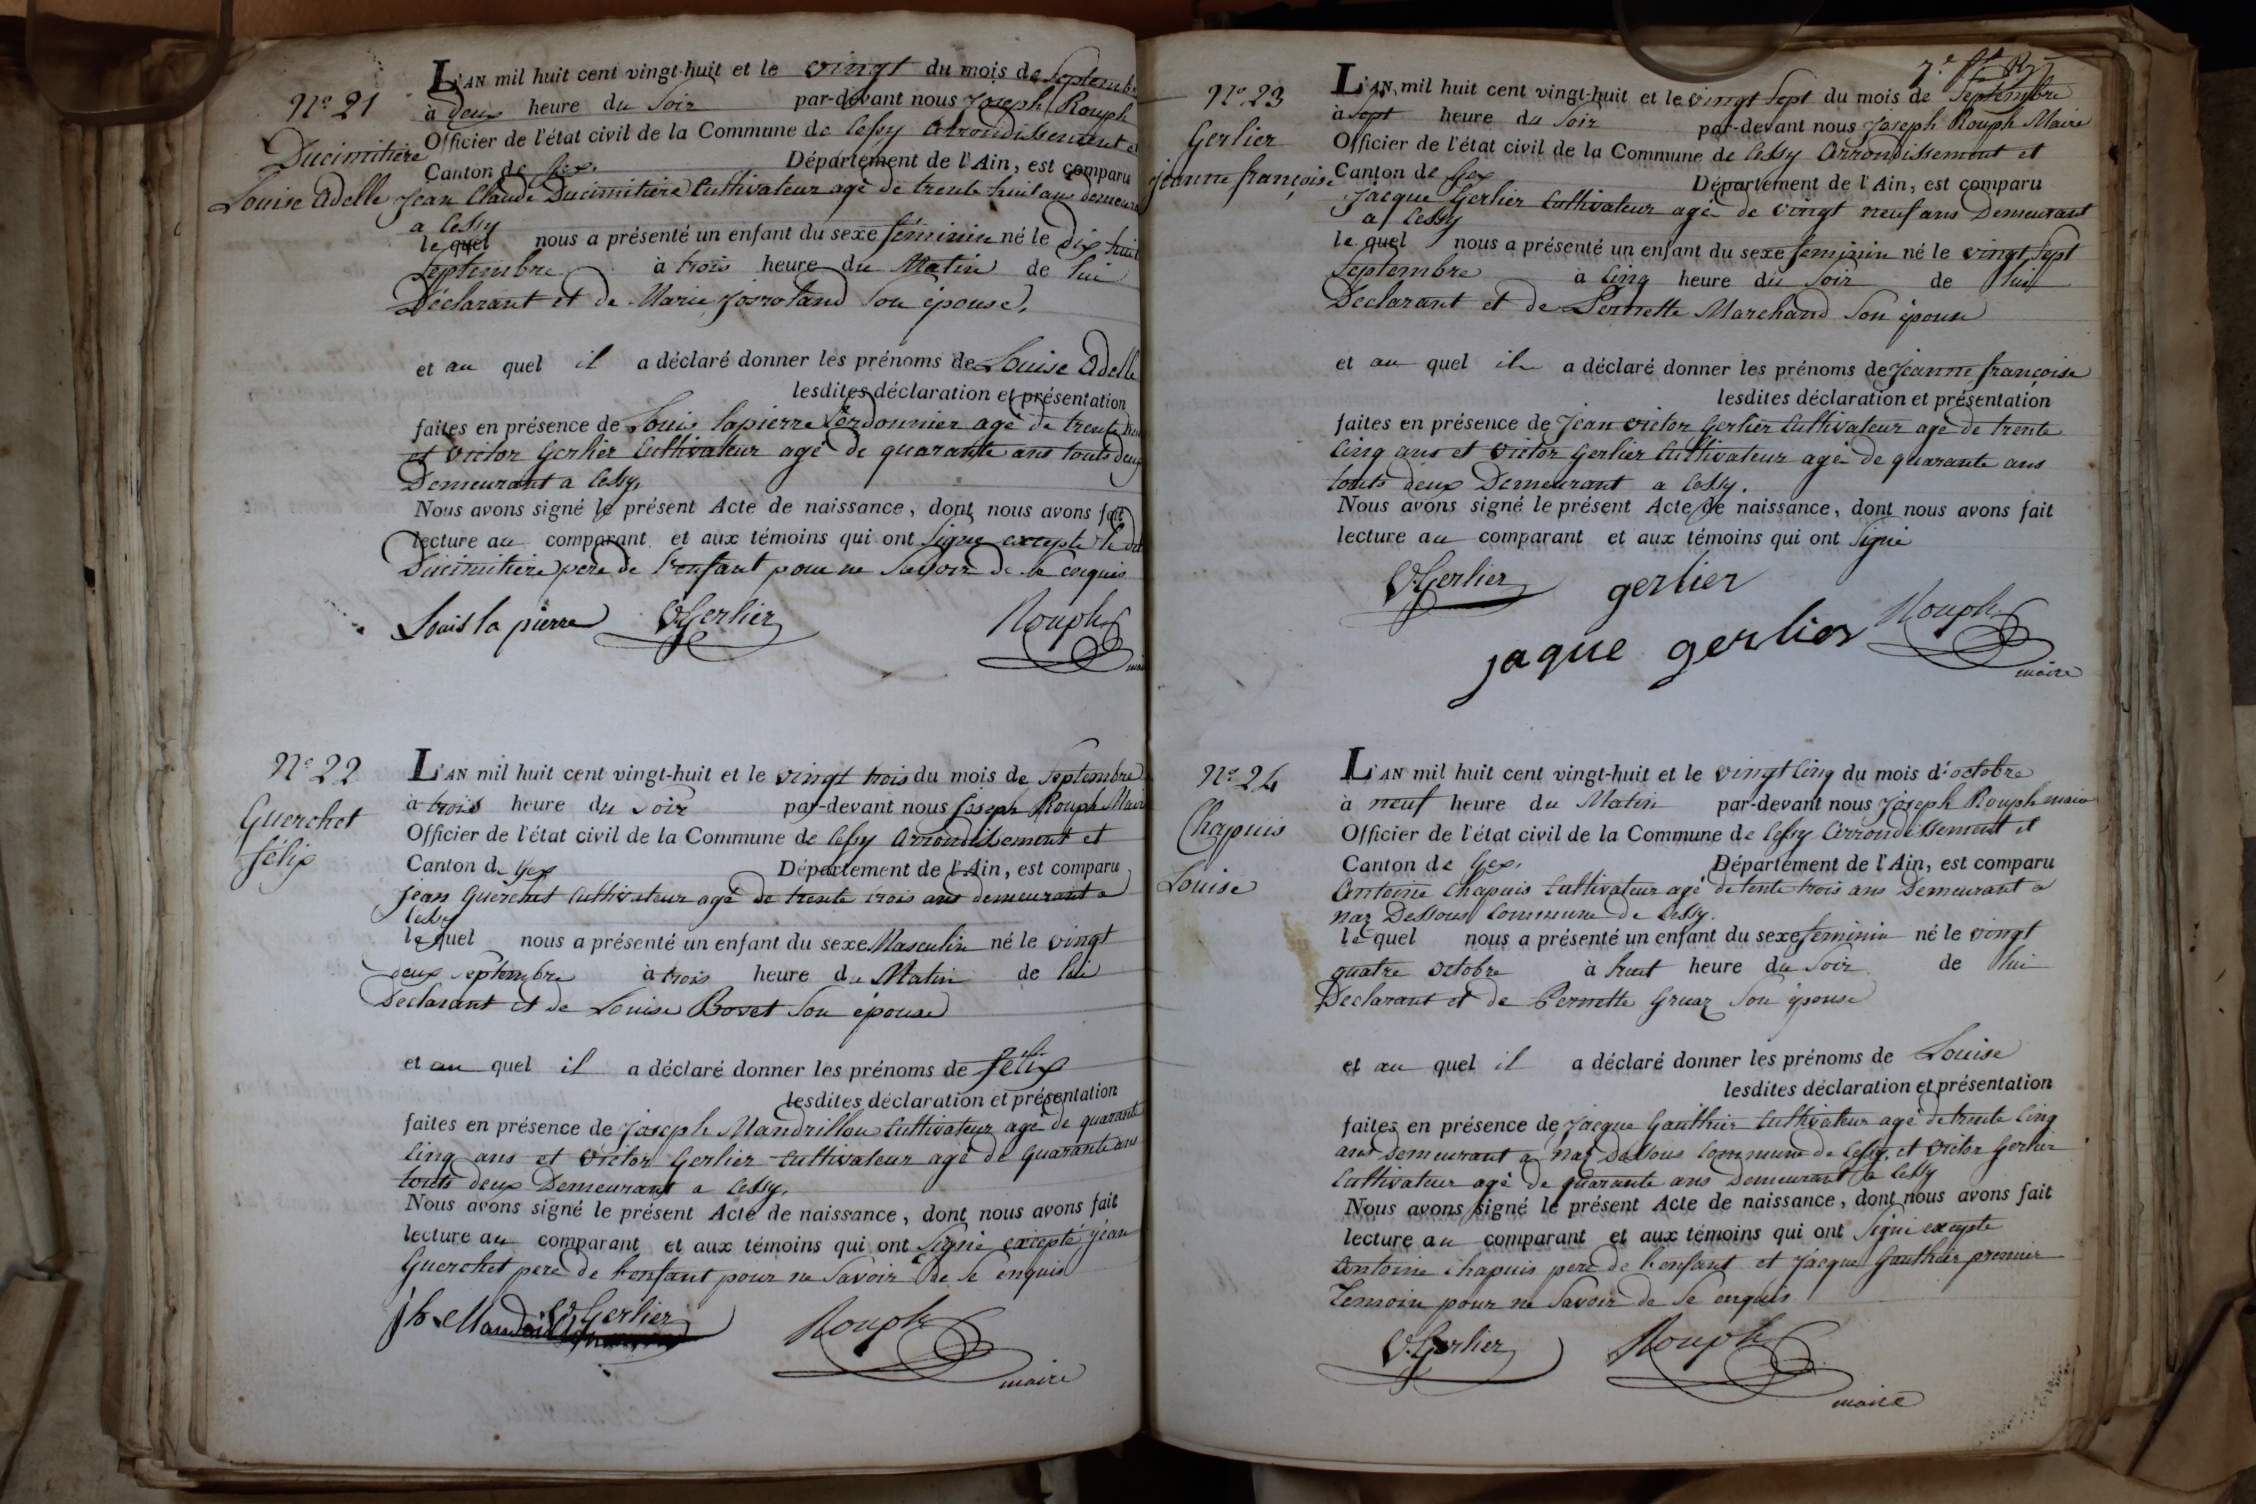 N° 21
Ducimitière
Louise Adelle
L'AN mil huit cent vingt-huit et le vingt du mois de Septembre
à deux heure du Soir par-devant nous Joseph Rouph
Officier de l'état civil de la Commune de Cessy Arrondissement et
Canton de Gex. Département de l'Ain, est comparu
Jean Claude Ducimitière Cultivateur agé de trente huit ans demeurant
a Cessy
le quel nous a présenté un enfant du sexe féminin né le dix huit
Septembre à trois heure du Matin de lui
Déclarant et de Marie Josroland Son épouse,
et au quel il a déclaré donner les prénoms de Louise Adelle
lesdites déclaration et présentation
faites en présence de Louis Lapierre Cordonnier agé de trente
et Victor Gerlier Cultivateur agé de quarante ans touts deux
Demeurant a Cessy,
Nous avons signé le présent Acte de naissance, dont nous avons fait
lecture au comparant et aux témoins qui ont Signé excepté le dit
Ducimitière pere de l'enfant pour ne Savoir de ce enquis
Louis la pierre V. Gerlier Rouph
maire
N° 22
Guerchet
félix
L'AN mil huit cent vingt-huit et le vingt trois du mois de Septembre
à trois heure du Soir par-devant nous Joseph Rouph Maire
Officier de l'état civil de la Commune de Cessy Arrondissement et
Canton de Gex Département de l'Ain, est comparu
Jean Guerchet Cultivateur agé de trente trois ans demeurant a
Cessy
le quel nous a présenté un enfant du sexe Masculin né le vingt
deux Septembre à trois heure du Matin de lui
Declarant et de Louise Bovet Son épouse
et au quel il a déclaré donner les prénoms de félix
lesdites déclaration et présentation
faites en présence de Joseph Mandrillon Cultivateur agé de quarante
Cinq ans et Victor Gerlier Cultivateur agé de Quarante ans
touts deux Demeurant a Cessy,
Nous avons signé le présent Acte de naissance, dont nous avons fait
lecture au comparant et aux témoins qui ont Signé excepté jean
Guerchet pere de l'enfant pour ne Savoir de Ce enquis
V. Gerlier Rouph
maire
N° 23
Gerlier
jeanne françoise
L'AN mil huit cent vingt-huit et le vingt Sept du mois de Septembre
à Sept heure du Soir par-devant nous Joseph Rouph Maire
Officier de l'état civil de la Commune de Cessy Arrondissement et
Canton de Gex Département de l'Ain, est comparu
Jacque Gerlier Cultivateur agé de vingt neuf ans Demeurant
a Cessy
le quel nous a présenté un enfant du sexe feminin né le vingt Sept
Septembre à Cinq heure du Soir de lui
Declarant et de Pernette Marchand Son épouse
et au quel il a déclaré donner les prénoms de jeanne françoise
lesdites déclaration et présentation
faites en présence de Jean victor Gerlier Cultivateur agé de trente
Cinq ans et Victor Gerlier Cultivateur agé de quarante ans
touts deux Demeurant a Cessy.
Nous avons signé le présent Acte de naissance, dont nous avons fait
lecture au comparant et aux témoins qui ont Signé
V. Gerlier gerlier Rouph
jaque gerlier
maire
N° 24
Chapuis
Louise
L'AN mil huit cent vingt-huit et le vingt Cinq du mois d'octobre
à neuf heure du Matin par-devant nous Joseph Rouph maire
Officier de l'état civil de la Commune de Cessy Arrondissement et
Canton de Gex, Département de l'Ain, est comparu
Antoine Chapuis Cultivateur agé de tente trois ans Demeurant a
naz Dessous Commune de Cessy.
le quel nous a présenté un enfant du sexe feminin né le vingt
quatre octobre à huit heure du Soir de lui
Declarant et de Pernette Gruaz Son épouse
et au quel il a déclaré donner les prénoms de Louise
lesdites déclaration et présentation
faites en présence de Jacque Gauthier Cultivateur agé de trente Cinq
ans Demeurant a Naz Dessous Commune de Cessy, et Victor Gerlier
Cultivateur agé de quarante ans Demeurant a Cessy
Nous avons signé le présent Acte de naissance, dont nous avons fait
lecture au comparant et aux témoins qui ont Signé excepté
Antoine Chapuis pere de l'enfant et Jacque Gauthier premier
Temoin pour ne Savoir de Ce enquis
V. Gerlier Rouph
maire